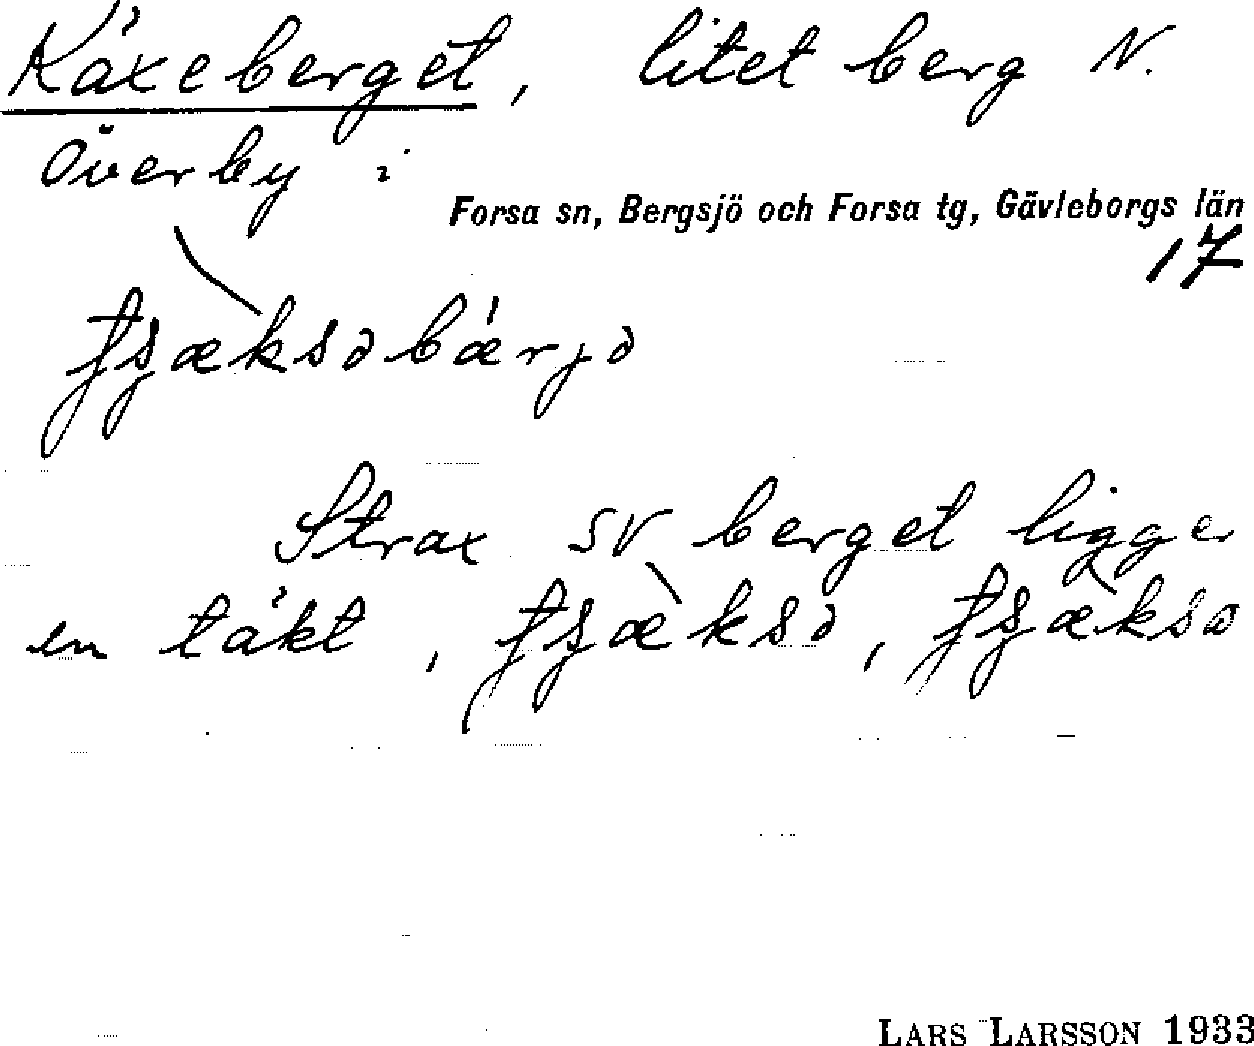 Käxeberget, litet berg N.
Överby i
Forsa sn, Bergsjö och Forsa tg, Gävleborgs län
17
tʂæ̀ksəbǽrjə
Strax SV berget ligger
en täkt, tʂæ̀ksə, tʂæ̀ksa
LARS LARSSON 1933